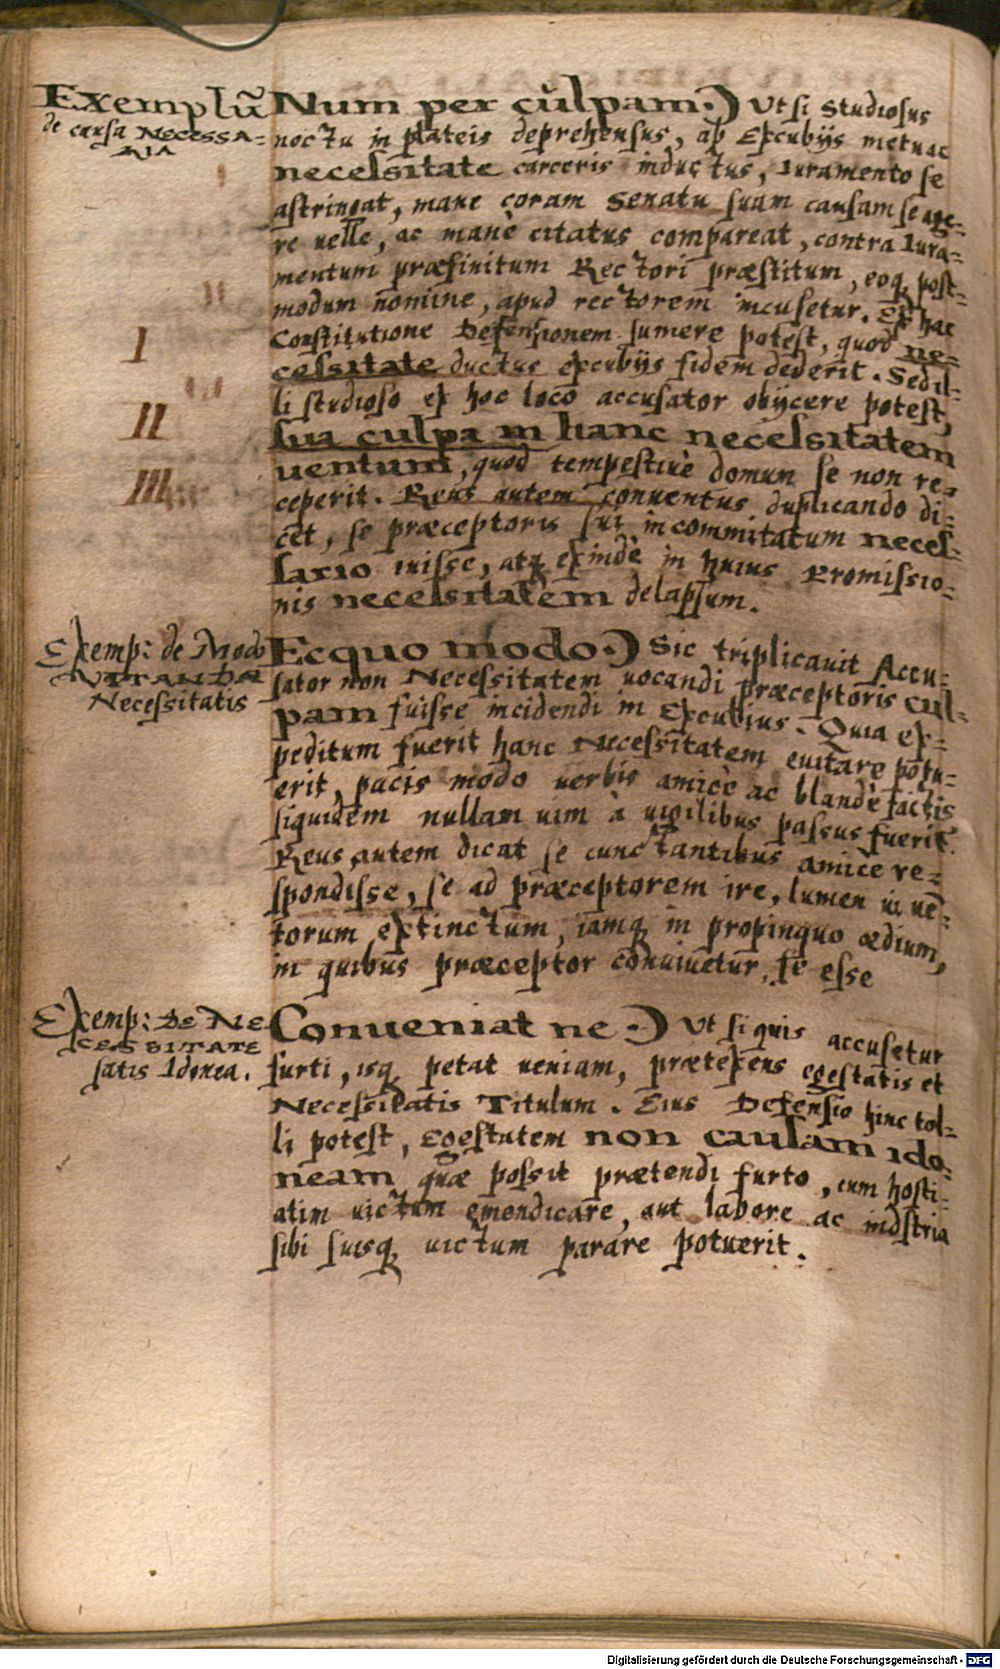 Exemplũ
de causa NECESSA-
RIA
Num per culpam.) Ut si studiosus
noctu in plateis deprehensus, ab Excubijs metu ac
necessitate carceris inductus, Iuramento se
astringat, mane coram Senatu suam causam se age-
re uelle, ac manè citatus compareat, contra Iura-
mentum præfinitum Rectori præstitum, eoq, post-
modum nomine, apud rectorem incusetur. Ex hac
I
Constitutione Defensionem sumere potest, quod ne-
cessitate ductus excubijs fidem dederit. Sed il-
li studioso ex hoc loco accusator obijcere potest,
II
sua culpa in hanc necessitatem
uentum, quod tempestiuè domum se non re-
III
ceperit. Reus autem conuentus duplicando di-
cet, se præceptoris sui in commitatum neces-
sario iuisse, atq exindè in huius Promissio-
nis necessitatem delapsum.
Exemp: de Modo
VITANDÆ
Necessitatis
Ecquo modo.) Sic triplicauit Accu-
sator non Necessitatem uocandi præceptoris cul-
pam fuisse incidendi in Excubius. Quia ex-
peditum fuerit hanc Necessitatem euitare potu-
erit, pacis modo uerbis amicè ac blandè factis
siquidem nullam uim à uigilibus passus fuerit.
Reus autem dicat se cunctantibus amicè re-
spondisse, se ad præceptorem ire, lumen ui uẽ-
torum extinctum, iamq in propinquo ædium,
in quibus præceptor conuiuetur, se esse
Exemp: DE NE
CESSITATE
satis Idonea.
Conueniat ne.) Ut si quis accusetur
furti, isq petat ueniam, prætexens egestatis et
Necessitatis Titulum. Eius Defensio hinc tol-
li potest, Egestatem non causam ido-
neam quæ possit prætendi furto, cum hosti-
atim uictum emendicare, aut labore ac indstria
sibi suisq uictum parare potuerit.
Digitalisierung gefördert durch die Deutsche Forschungsgemeinschaft - DFG